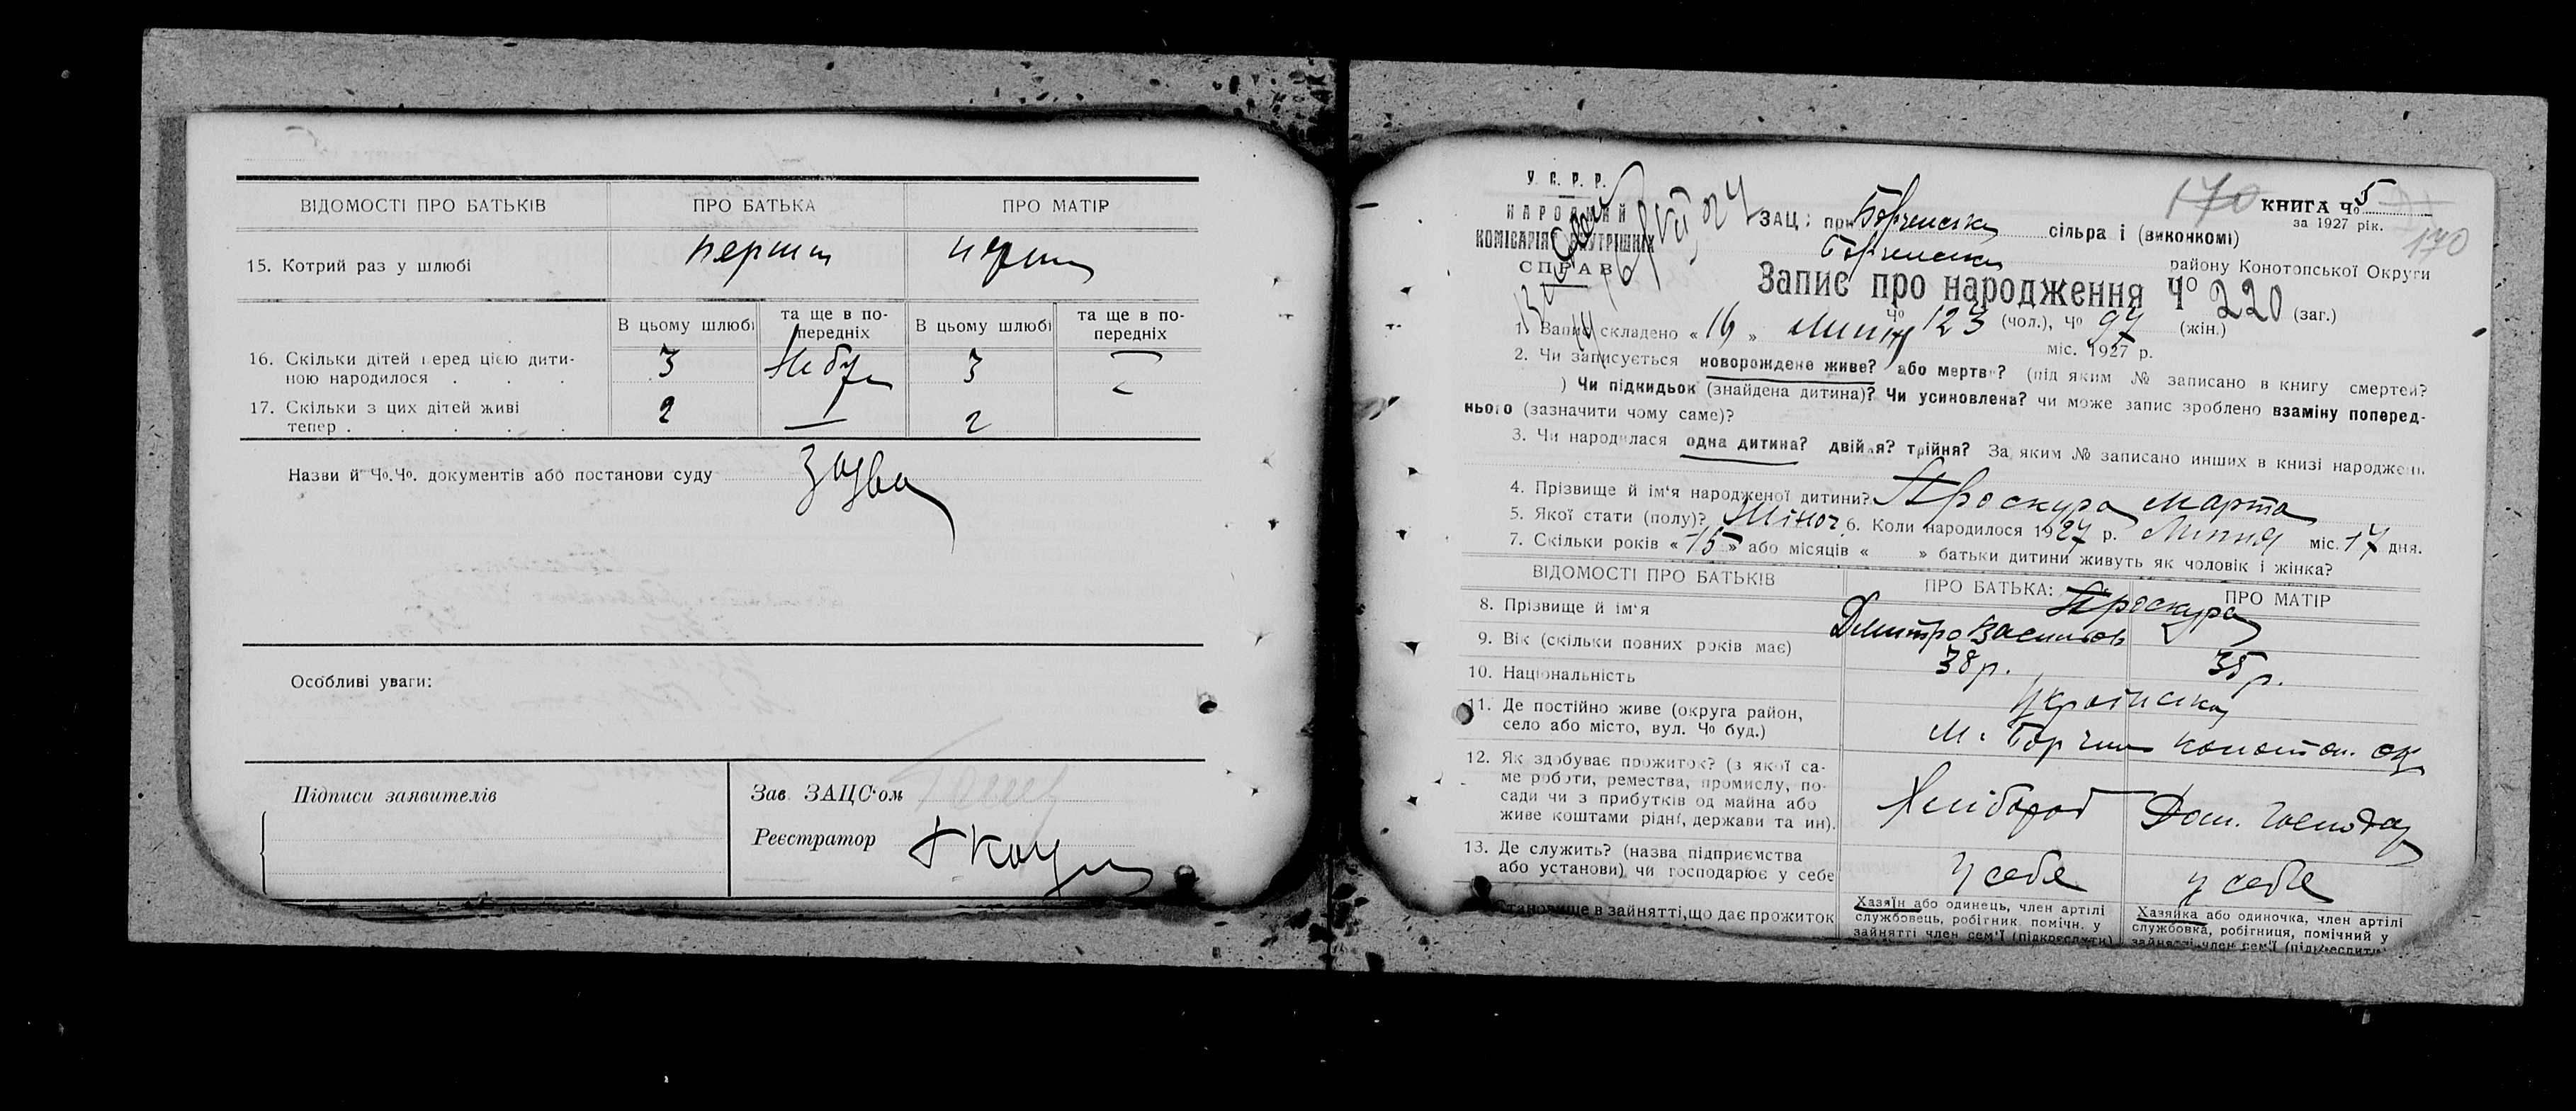 ВІДОМОСТІ ПРО БАТЬКІВ ПРО БАТЬКА ПРО МАТІР
15. Котрий раз у шлюбі перший перший
В цьому шлюбі та ще в по-передніх В цьому шлюбі та ще в по-передніх
16. Скільки дітей перед цією дити-
ною народилося . . . 3 3 —
17. Скільки з цих дітей живі
тепер . . . . . 2 — 2
Назви й Чо.Чо. документів або постанови суду
Особливі уваги:
Підписи заявителів
Зав. ЗАЦС'ом
Реєстратор
У. С. Р. Р.
НАРОДНИЙ
КОМІСАРІЯТ ВНУТРІШНІХ
СПРАВ
170 КНИГА Чо 5
за 1927 рік.
170
ЗАЦ: при сільра і (виконкомі)
району Конотопської Округи
Запис про народження Чо 220 (заг.)
Чо 123 (чол.), Чо 97 (жін.)
1. Запис складено « 19 » Липня міс. 1927 р.
2. Чи записується новорождене живе? або мертве? (під яким № записано в книгу смертей?
) Чи підкидьок (знайдена дитина)? Чи усиновлена? чи може запис зроблено взаміну поперед-
нього (зазначити чому саме)?
3. Чи народилася одна дитина? двійня? трійня? За яким № записано инших в книзі народжень
4. Прізвище й ім'я народженої дитини? Проскура Марта
5. Якої стати (полу)? Жіноч. 6. Коли народилося 1927 р. Липня міс. 17 дня.
7. Скільки років « 15 » або місяців « » батьки дитини живуть як чоловік і жінка?
ВІДОМОСТІ ПРО БАТЬКІВ ПРО БАТЬКА: ПРО МАТІР
8. Прізвище й ім'я Проскура
Дмитро Васильов
9. Вік (скільки повних років має) 38 р. 35 р.
10. Національність Українська
11. Де постійно живе (округа район,
село або місто, вул. Чо буд.) м. Конотоп. ок
12. Як здобуває прожиток? (з якої са-
ме роботи, ремества, промислу, по-
сади чи з прибутків од майна або
живе коштами рідні, держави та ин). Хлібороб Дом. господар
13. Де служить? (назва підприємства
або установи) чи господарює у себе у себе у себе
Становище в зайнятті, що дає прожиток
Хазяїн або одинець, член артілі
службовець, робітник, помічн. у
зайнятті член сем'ї (підкреслити)
Хазяйка або одиночка, член артілі
службовка, робітниця, помічний у
зайнятті член сем'ї (підкреслити)